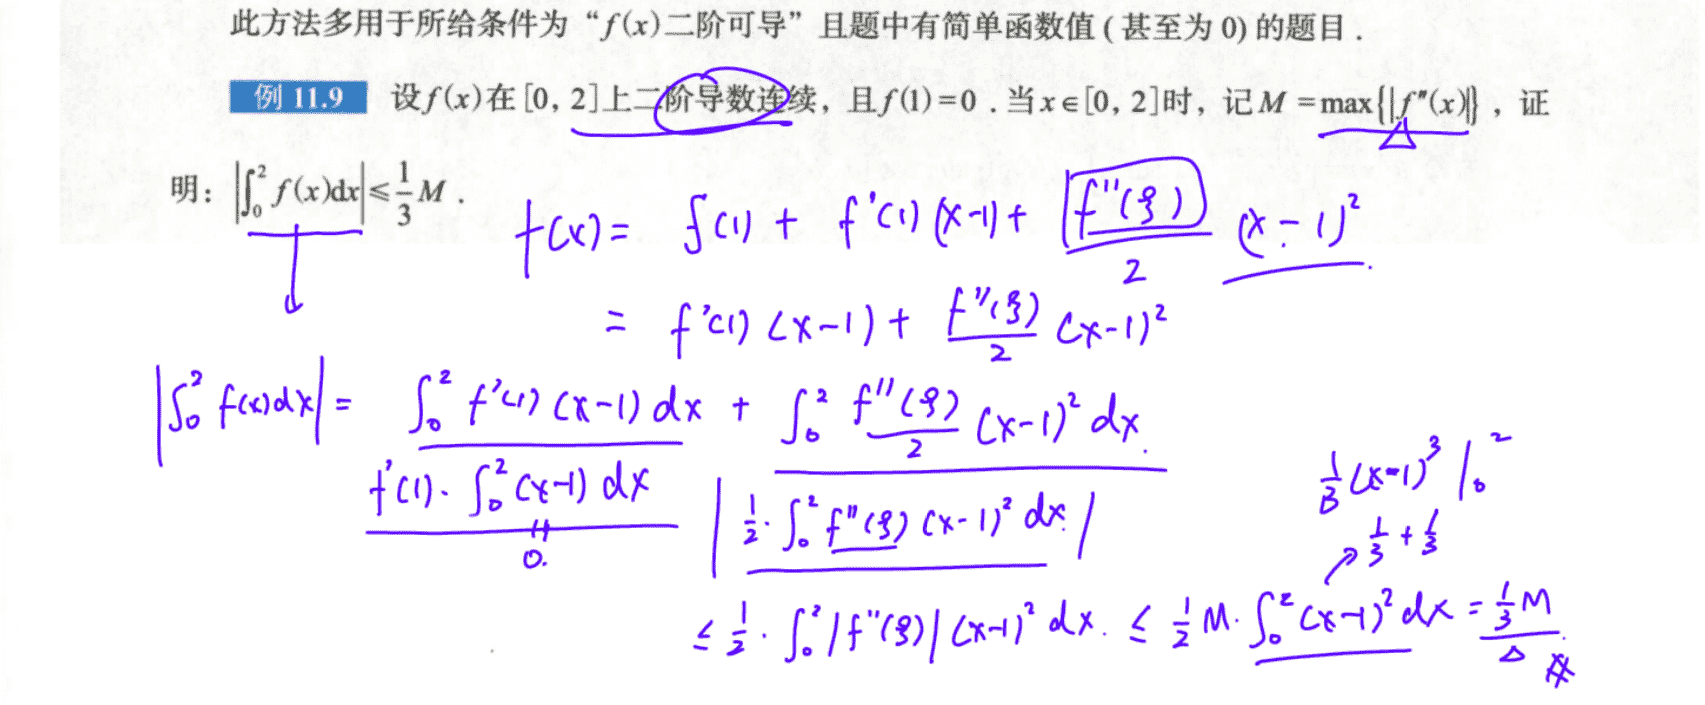 此方法多用于所给条件为“f(x)二阶可导”且题中有简单函数值(甚至为0)的题目.
例 11.9 设f(x)在[0, 2]上二阶导数连续，且f(1)=0.当x∈[0, 2]时，记M=max{|f″(x)|}，证
明：|∫₀² f(x)dx|≤1/3 M.
f(x)= f(1) + f'(1)(x-1)+ f''(ξ)/2 (x-1)².
= f'(1)(x-1)+ f''(ξ)/2 (x-1)²
|∫₀² f(x)dx| = ∫₀² f'(1)(x-1)dx + ∫₀² f''(ξ)/2 (x-1)² dx.
f'(1)·∫₀²(x-1)dx
0.
|1/2·∫₀² f''(ξ)(x-1)² dx|
1/3(x-1)³|₀²
1/3+1/3
≤ 1/2·∫₀²|f''(ξ)|(x-1)² dx. ≤ 1/2 M·∫₀²(x-1)² dx = 1/3 M